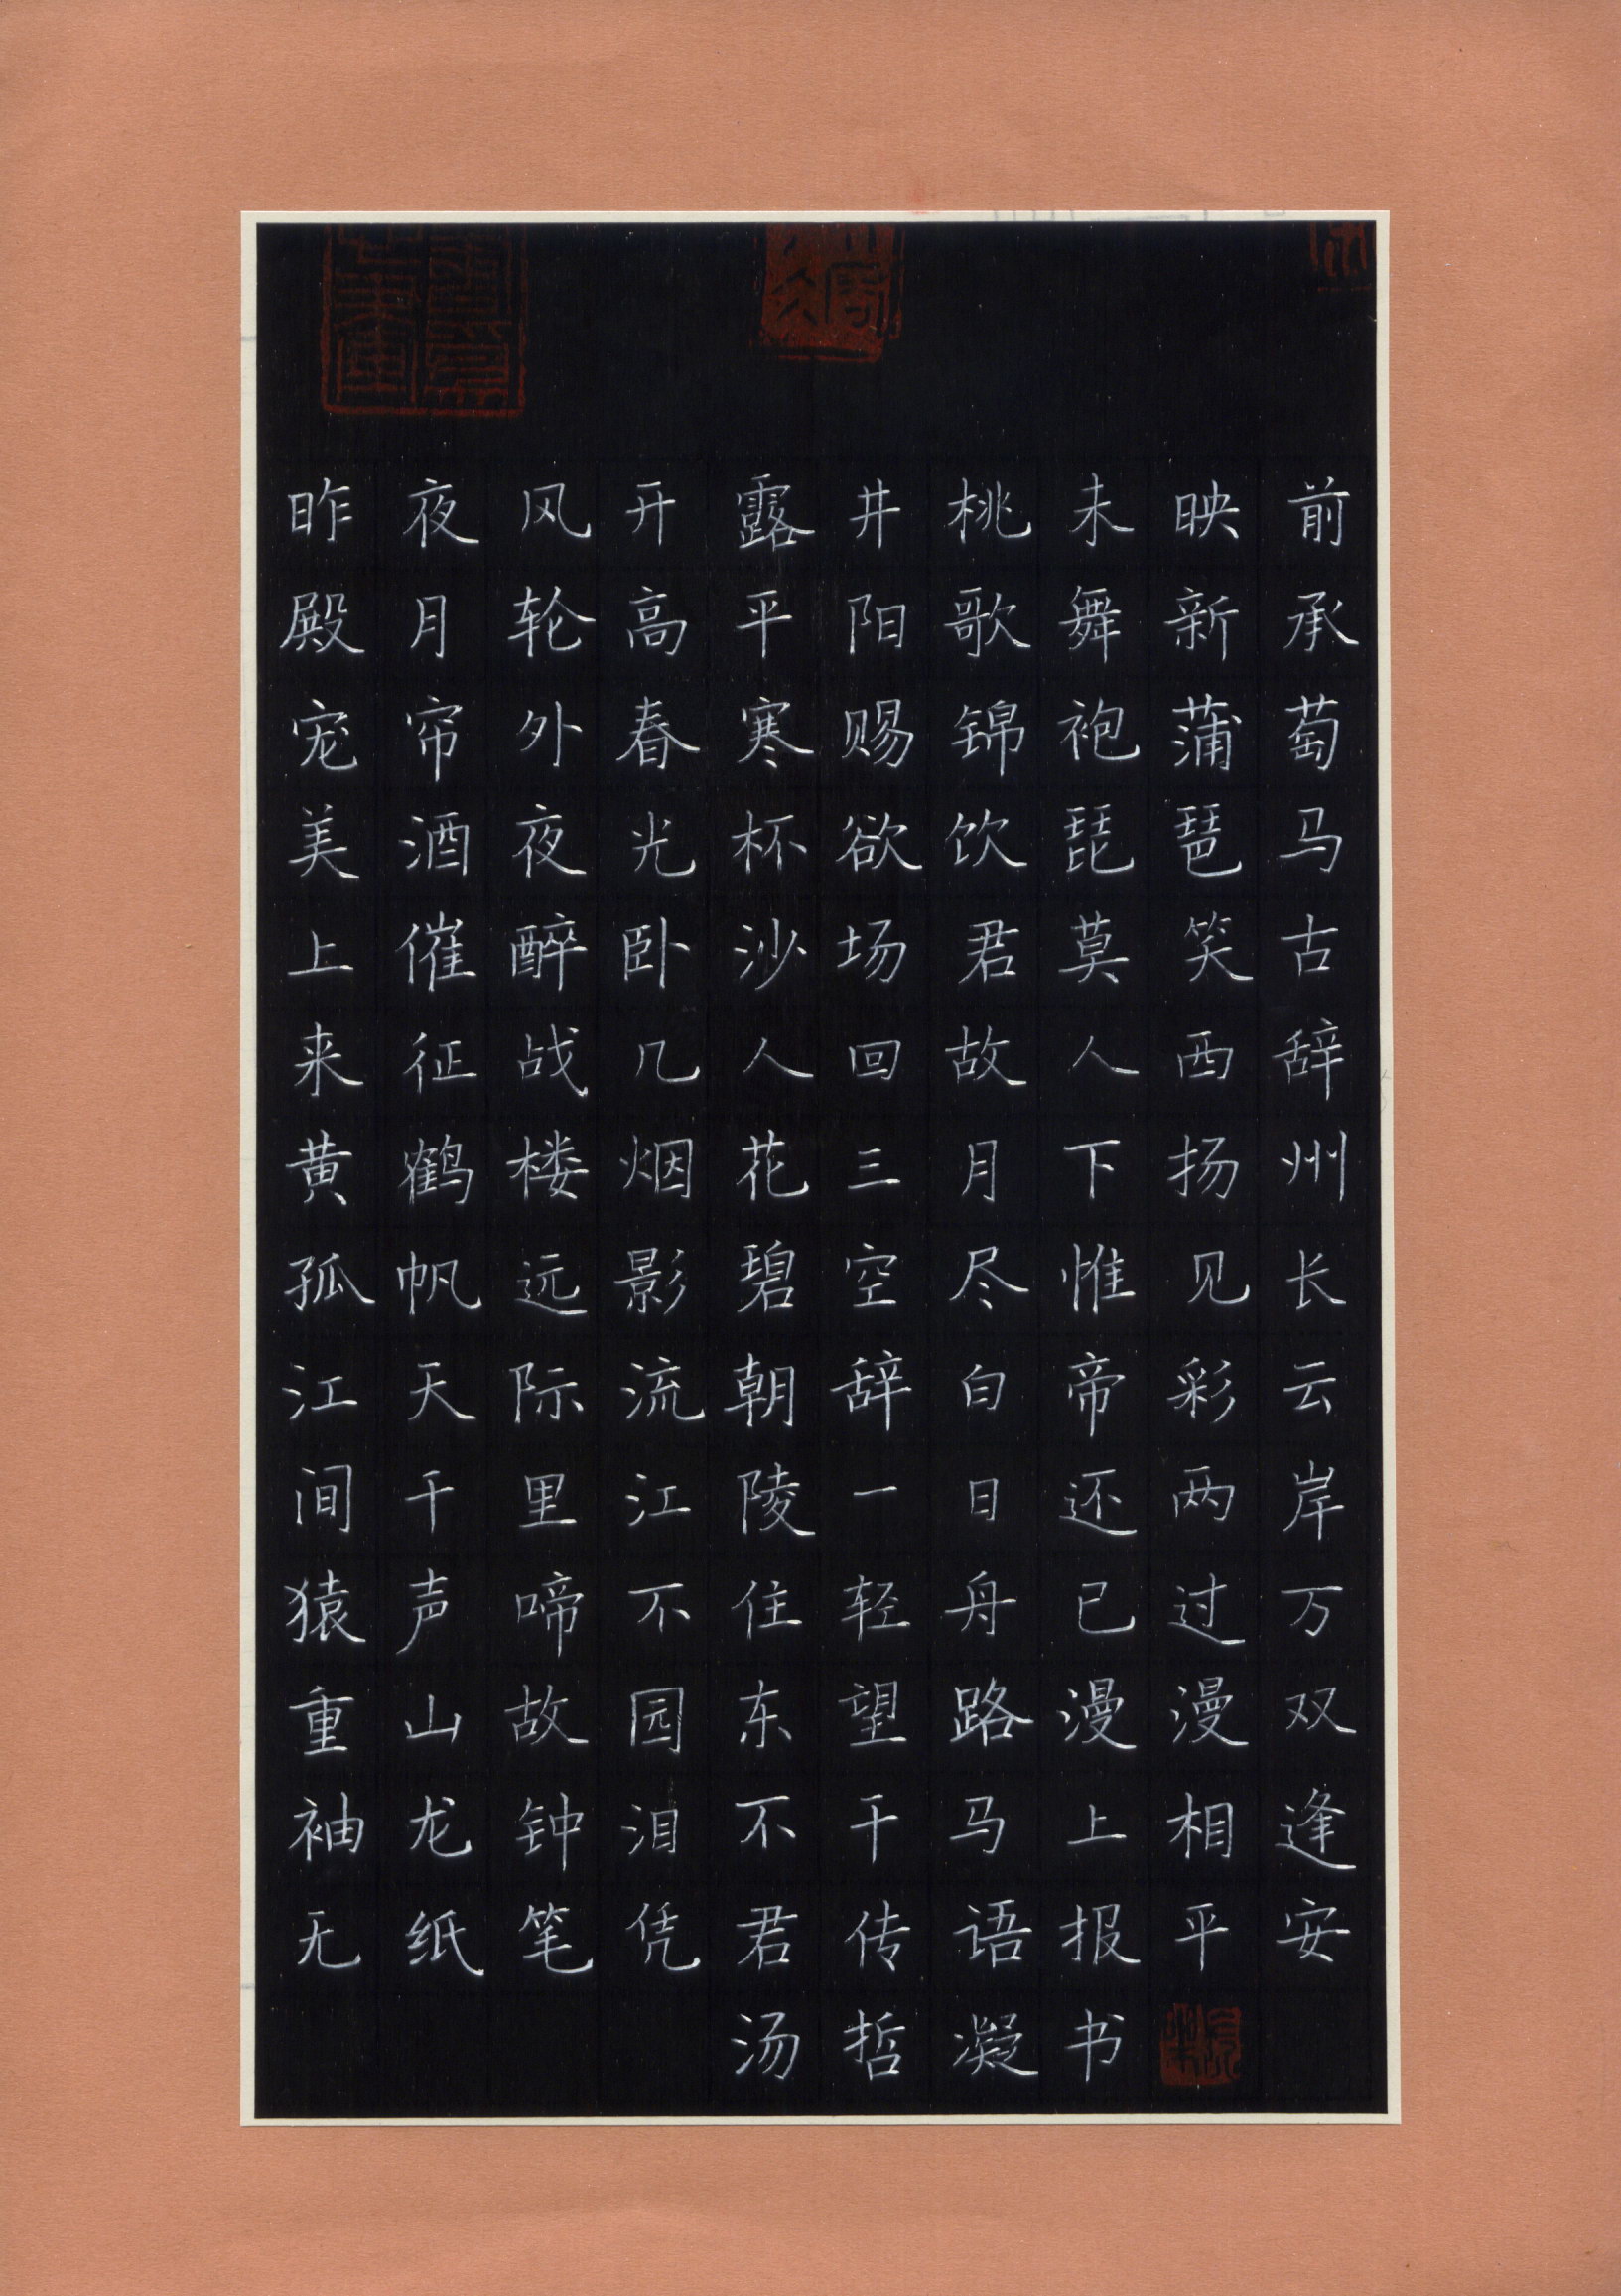 昨夜风开露井桃未映前
殿月轮高平阳歌舞新承
宠帘外春寒赐锦袍蒲萄
美酒夜光杯欲饮琵琶马
上催醉卧沙场君莫笑古
来征战几人回故人西辞
黄鹤楼烟花三月下扬州
孤帆远影碧空尽惟见长
江天际流朝辞白帝彩云
间千里江陵一日还两岸
猿声啼不住轻舟已过万
重山故园东望路漫漫双
袖龙钟泪不干马上相逢
无纸笔凭君传语报平安
汤哲凝书